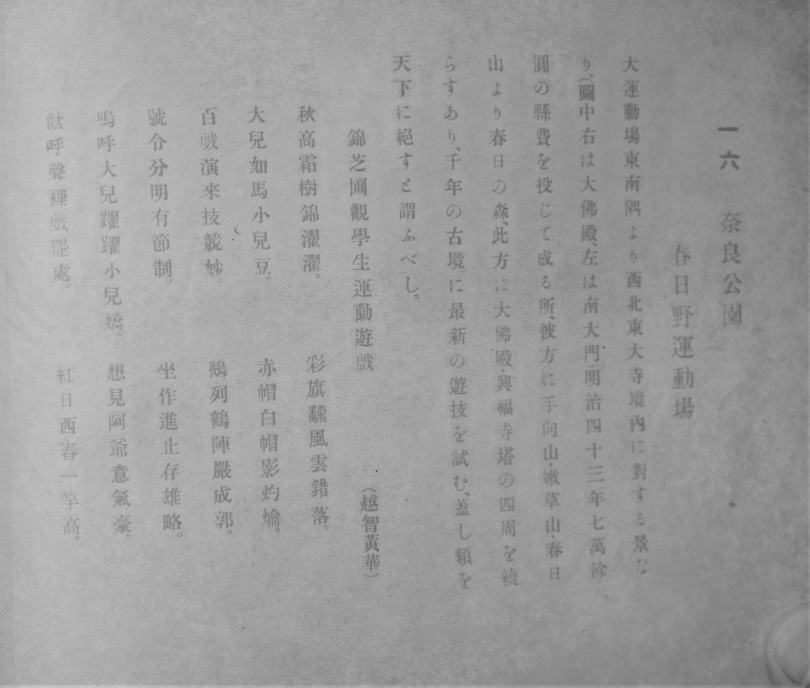 一六 奈良公園
春日野運動場
大運動場東南隅より西北東大寺境內に對する景な
り、(圖中右は大佛殿、左は南大門)明治四十三年七萬餘
圓の縣費を投じて成る所、彼方に手向山・嫩草山・春日
山より春日の森、此方に大佛殿・興福寺塔の四周を繞
らすあり、千年の古境に最新の遊技を試む、蓋し類を
天下に絕すと謂ふべし。
錦芝圃觀學生運動遊戲 (越智黃華)
秋高霜樹錦濯濯。 彩旗飜風雲錯落。
大兒如馬小兒豆。 赤帽白帽影灼爚。
百戲演來技競妙。 鵝列鶴陣嚴成郭。
號令分明有節制。 坐作進止存雄略。
嗚呼大兒躍躍小兒嬌。 想見阿爺意氣豪。
歡呼聲裡戲罷處。 紅日西舂一竿高。